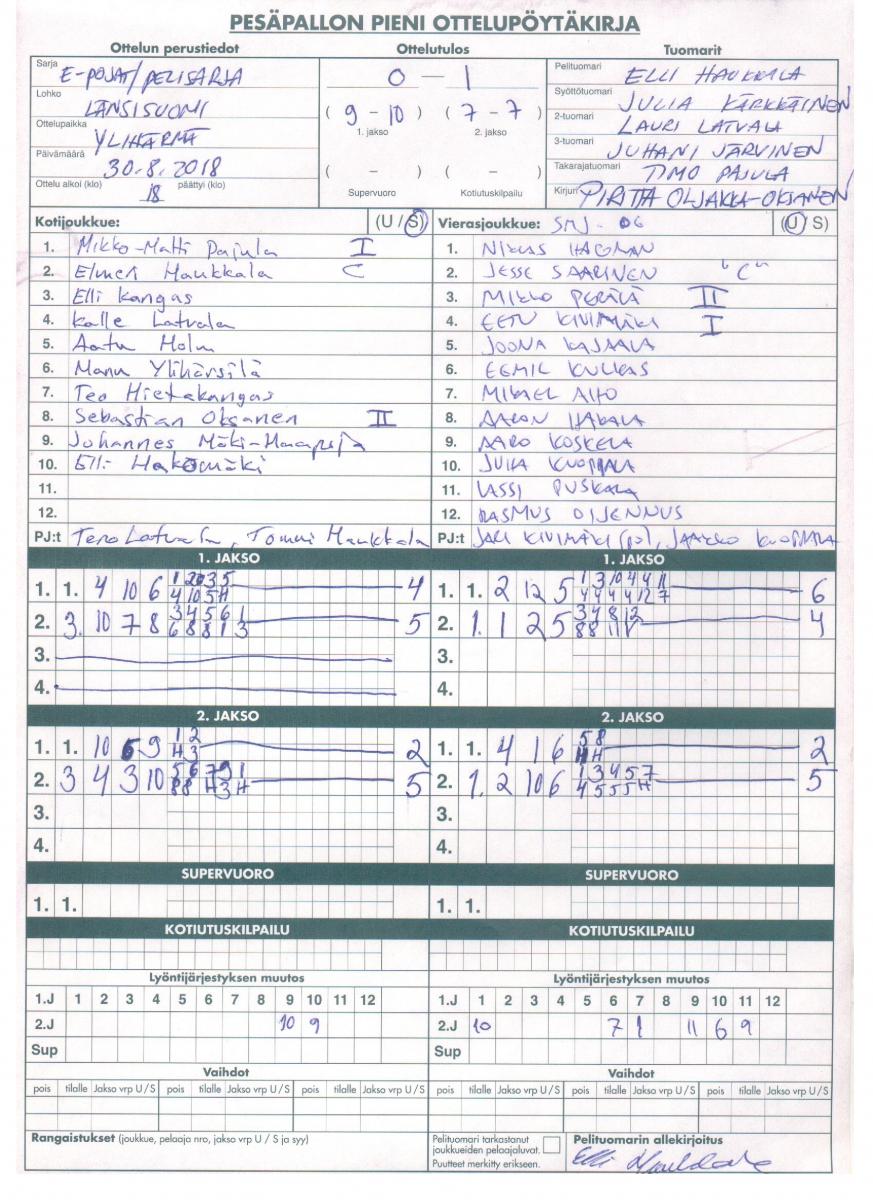 PESÄPALLON PIENI OTTELUPÖYTÄKIRJA
Ottelun perustiedot
Sarja E-POJAT/PELISARJA
Lohko LÄNSISUOMI
Ottelupaikka YLIHÄRMÄ
Päivämäärä 30.8.2018
Ottelu alkoi (klo) 18 päättyi (klo)
Ottelutulos
0 – 1
( 9 – 10 ) ( 7 – 7 )
1. jakso 2. jakso
( – ) ( – )
Supervuoro Kotiutuskilpailu
Tuomarit
Pelituomari ELLI HAUKKALA
Syöttötuomari JULIA KÄRKKÄINEN
2-tuomari LAURI LATVALA
3-tuomari JUHANI JÄRVINEN
Takarajatuomari TIMO PAJULA
Kirjuri PIRITTA OLJAKKA-OKSANEN
Kotijoukkue: (U / S)
1. Mikko-Matti Pajula I
2. Elmeri Haukkala C
3. Elli Kangas
4. Kalle Latvala
5. Aatu Holm
6. Manu Ylihärsilä
7. Teo Hietakangas
8. Sebastian Oksanen II
9. Johannes
10. Elli Hakomäki
11.
12.
PJ:t Tero Latvala, Tommi Haukkala
Vierasjoukkue: SMJ - 06 (U / S)
1. NIKLAS HAGMAN
2. JESSE SAARINEN "C"
3. MIKKO PERÄLÄ II
4. EETU KIVIMÄKI I
5. JOONA KAJAALA
6. EEMIL KULLAS
7. MIKAEL AHO
8. AARON HAKALA
9. AARO KOSKELA
10. JUHA KUOPPALA
11. LASSI PUSKALA
12. RASMUS OIJENNUS
PJ:t JARI KIVIMÄKI (pj), JAAKKO KUOPPALA
1. JAKSO
1. 1. 4 10 6 4
2. 3. 10 7 8 3 4 5 6 1 5
6 8 8 1 3
3.
4.
1. JAKSO
1. 1. 2 12 5 1 3 10 4 4 11 6
4 4 4 4 12 7
2. 1. 1 2 5 3 4 8 12 4
3.
4.
2. JAKSO
1. 1. 10 6 9 1 2 2
H 3
2. 3 4 3 10 5 6 7 9 1 5
8 8 H 3 H
3.
4.
2. JAKSO
1. 1. 4 1 6 5 8 2
H H
2. 1. 2 10 6 1 3 4 5 7 5
4 5 5 5 H
3.
4.
SUPERVUORO
1. 1.
SUPERVUORO
1. 1.
KOTIUTUSKILPAILU
KOTIUTUSKILPAILU
Lyöntijärjestyksen muutos
1.J 1 2 3 4 5 6 7 8 9 10 11 12
2.J 10 9
Sup
Lyöntijärjestyksen muutos
1.J 1 2 3 4 5 6 7 8 9 10 11 12
2.J 10 7 1 11 6 9
Sup
Vaihdot
pois tilalle Jakso vrp U / S pois tilalle Jakso vrp U / S pois tilalle Jakso vrp U / S
Vaihdot
pois tilalle Jakso vrp U / S pois tilalle Jakso vrp U / S pois tilalle Jakso vrp U / S
Rangaistukset (joukkue, pelaaja nro, jakso vrp U / S ja syy)
Pelituomari tarkastanut
joukkueiden pelaajaluvat.
Puutteet merkitty erikseen.
Pelituomarin allekirjoitus
Elli Haukkala